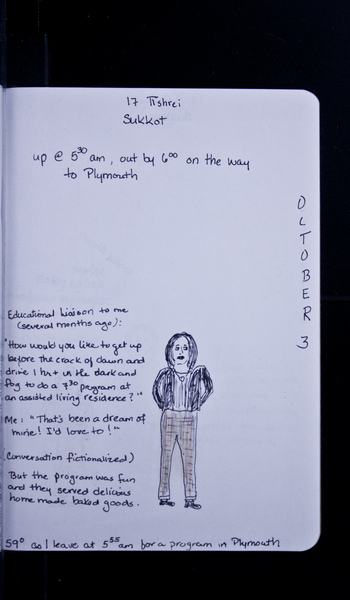 17 Tishrei
Sukkot
up @ 5³⁰ am, out by 6⁰⁰ on the way
to Plymouth
OCTOBER 3
Educational Liaison to me
(several months ago):
"How would you like to get up
before the crack of dawn and
drive 1 hr+ in the dark and
fog to do a 7³⁰ program at
an assisted living residence?"
Me: "That's been a dream of
mine! I'd love to!"
(Conversation fictionalized)
But the program was fun
and they served delicious
home made baked goods.
59° as I leave at 5⁵⁵ am for a program in Plymouth